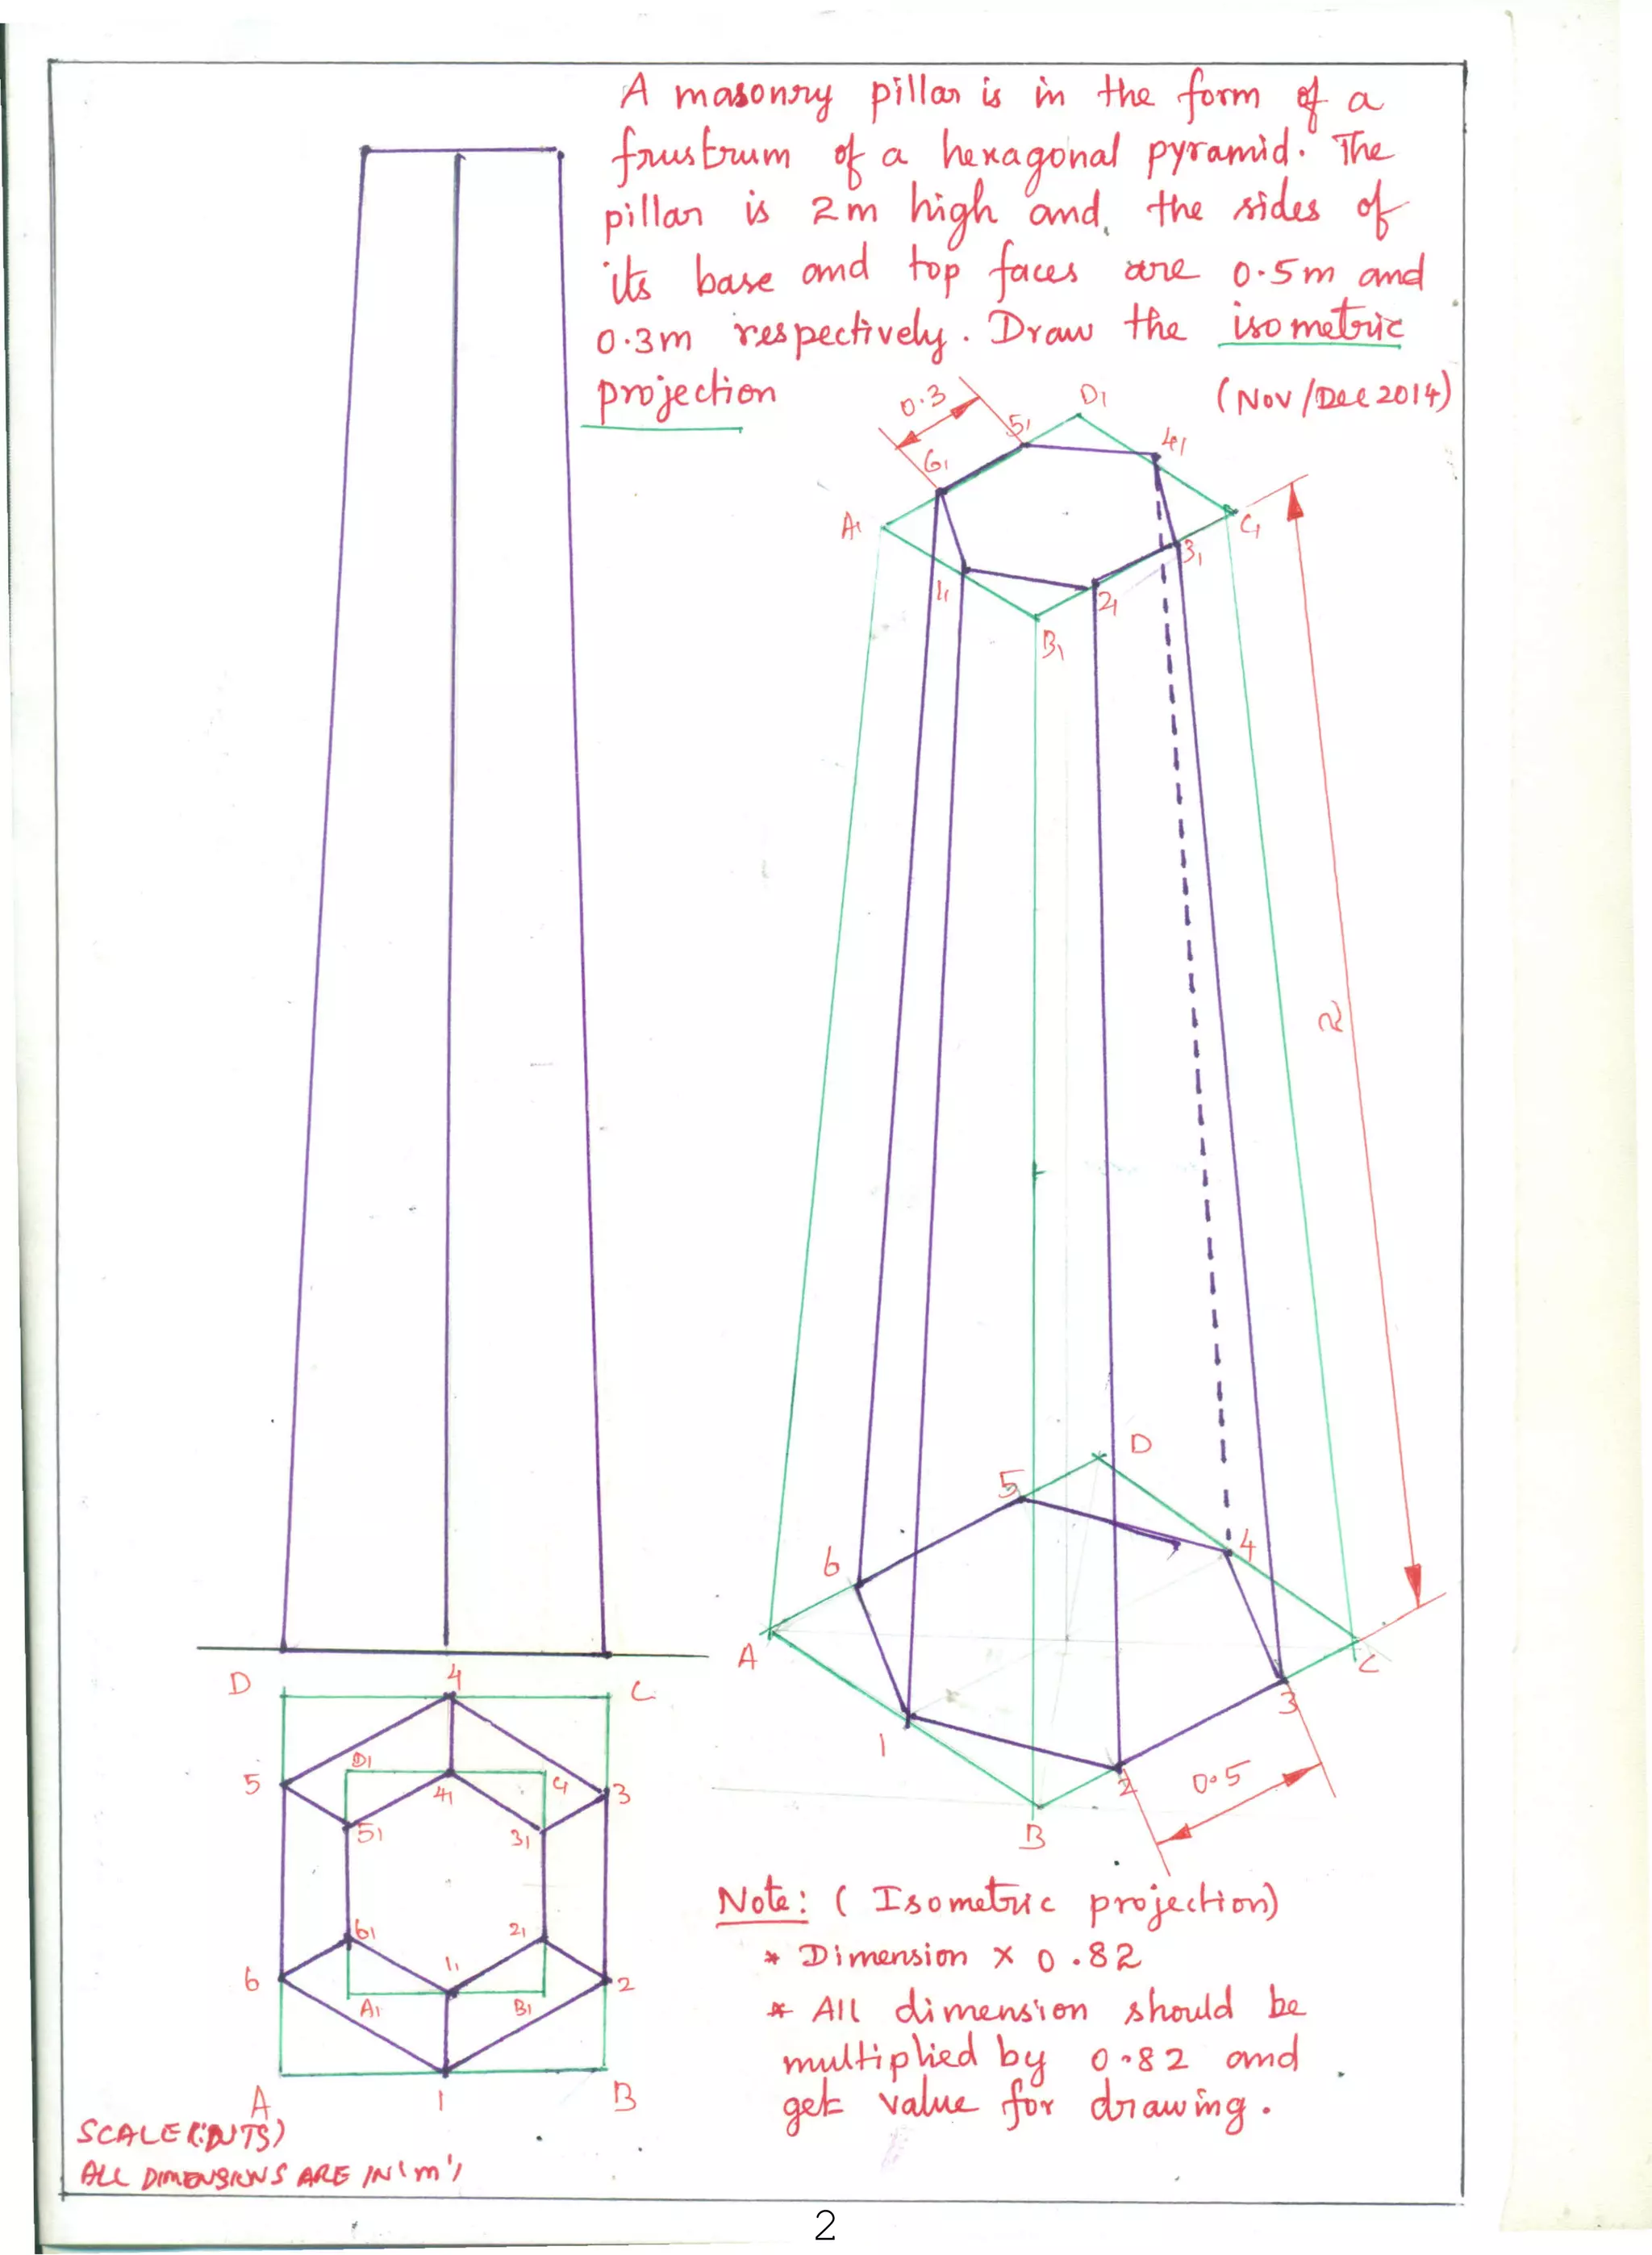 A masonry pillar is in the form of a
frustrum of a hexagonal pyramid. The
pillar is 2m high and, the sides of
its base and top faces are 0.5m and
0.3m respectively. Draw the isometric
projection
(Nov/Dec 2014)
0.3
D1
51
41
61
A1
C1
31
11
21
B1
2
D
5
4
6
A
C
3
1
2
0.5
B
D
4
C
D1
5
C1
3
41
51
31
61
21
11
6
2
A1
B1
A
1
B
Note: ( Isometric projection)
* Dimension X 0.82
* All dimension should be
multiplied by 0.82 and
get value for drawing.
ALL DIMENSIONS ARE IN 'm'
2